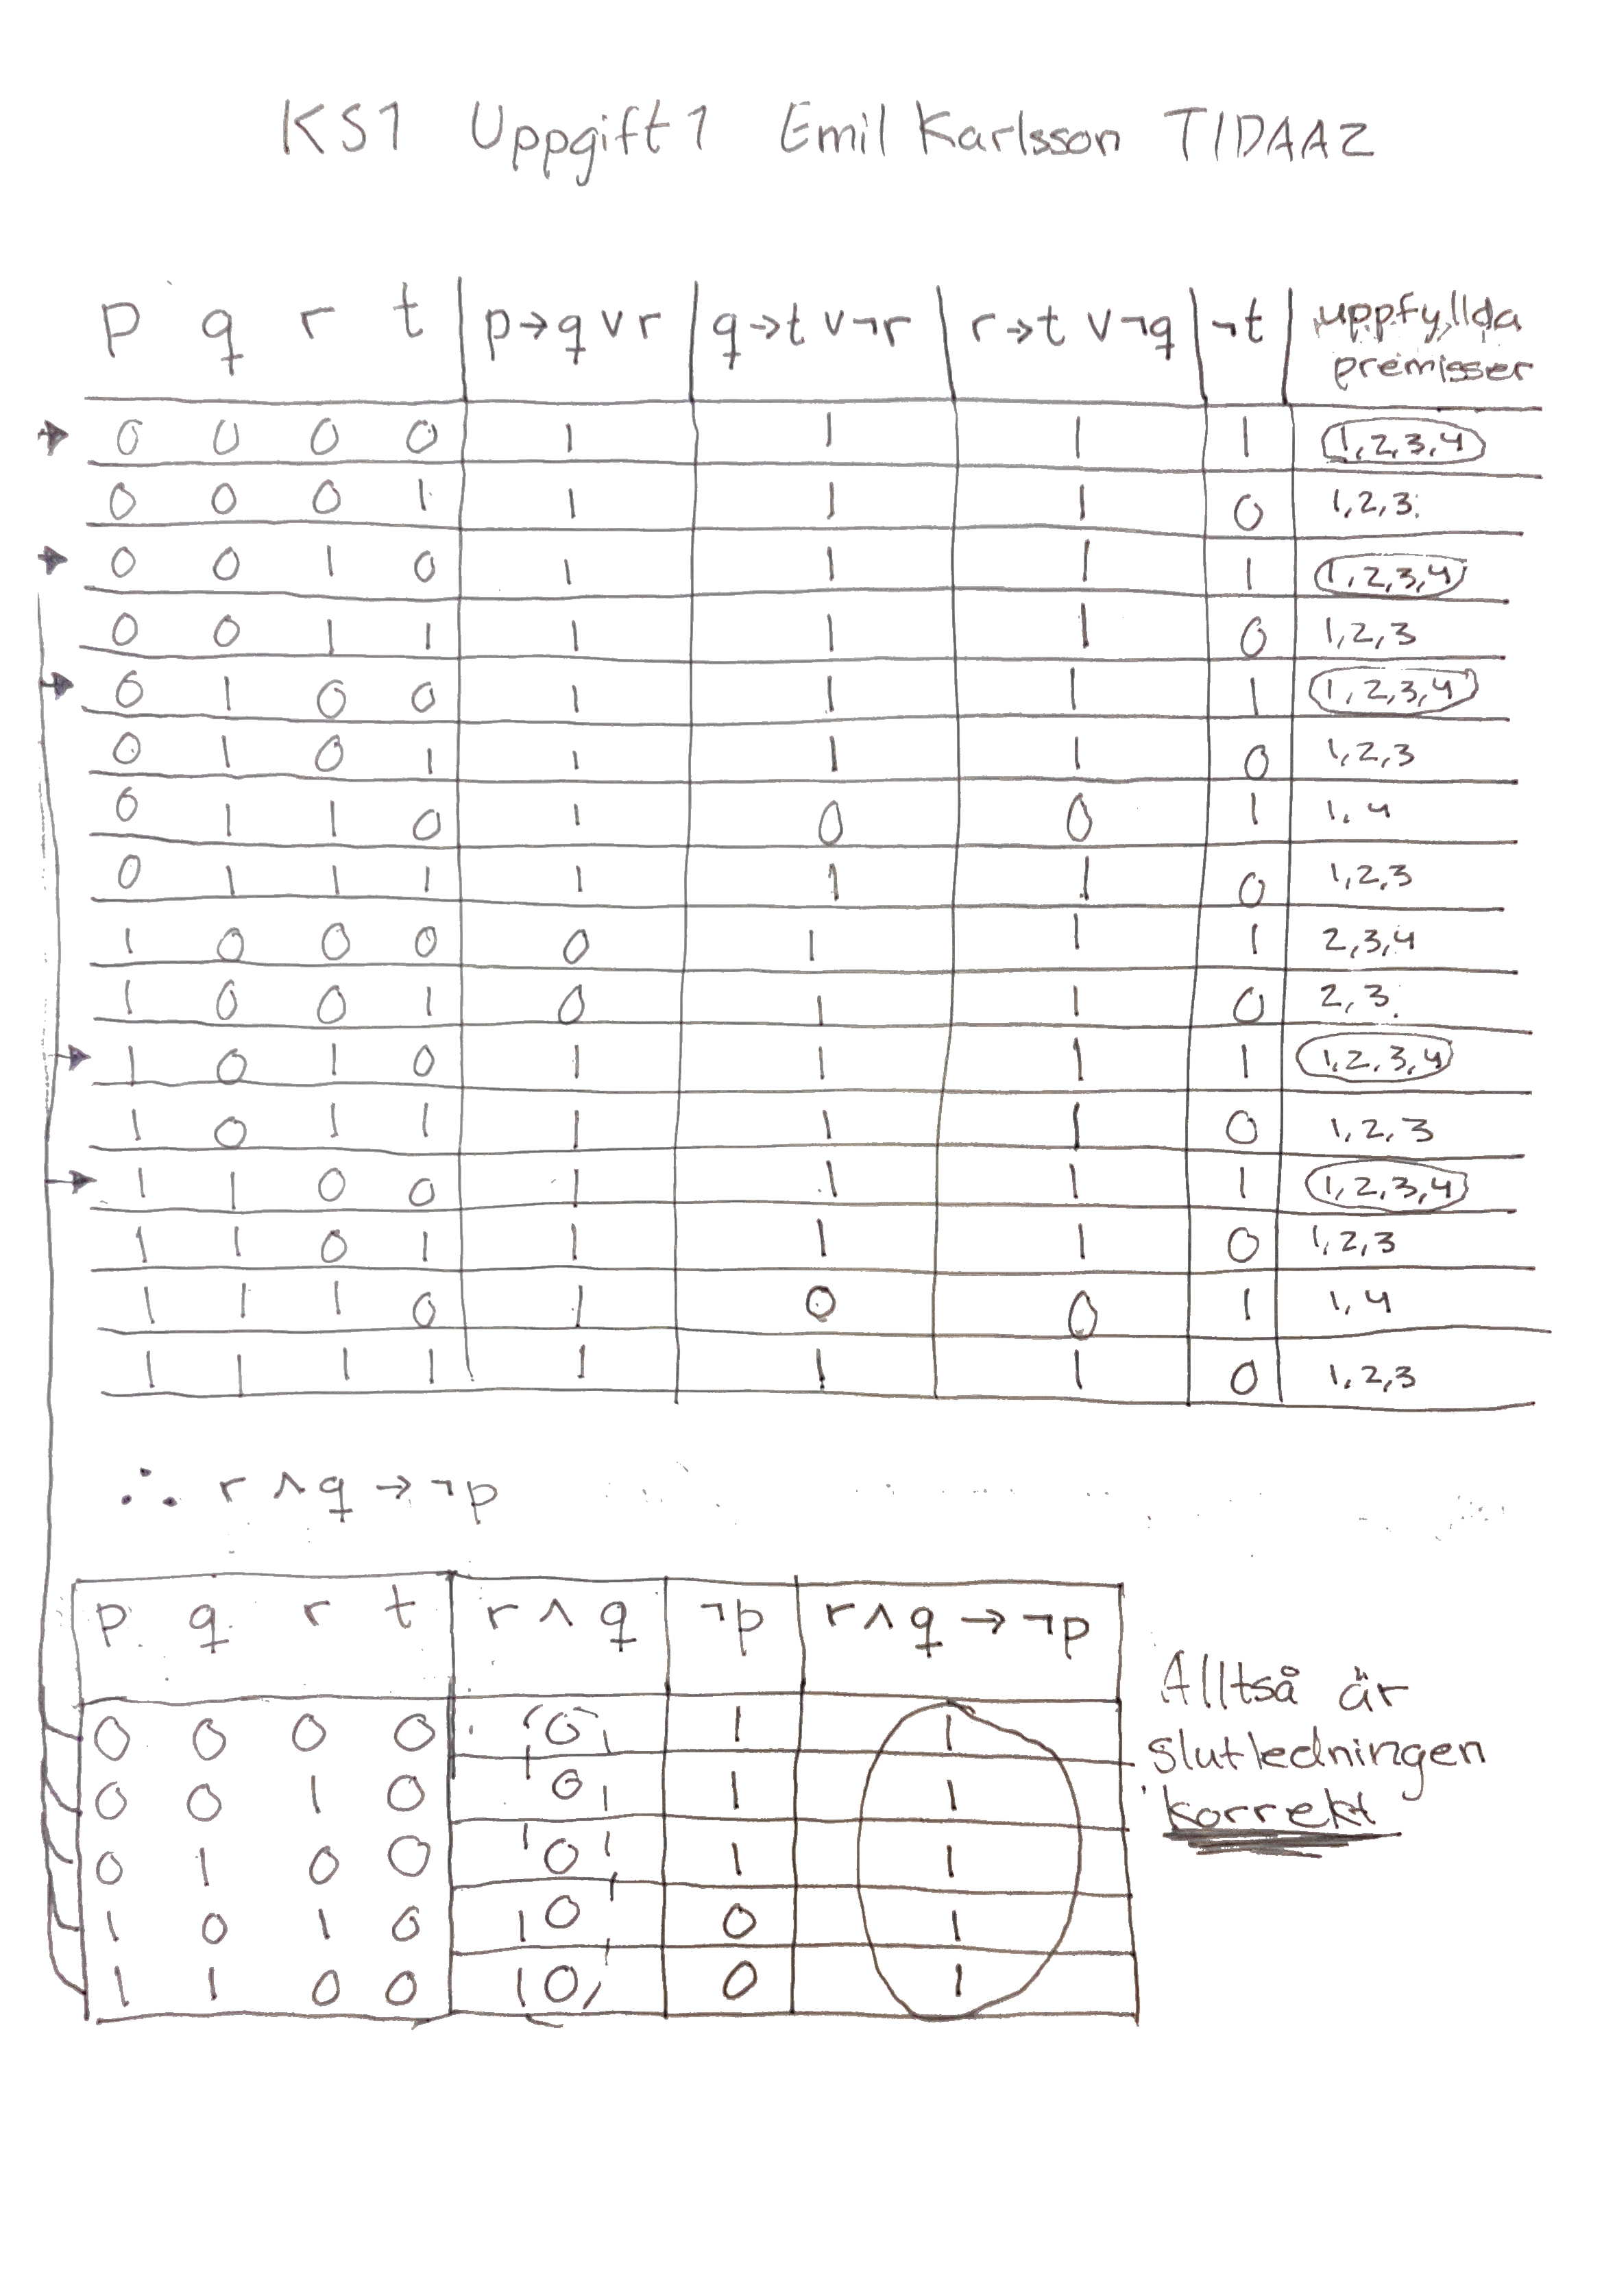 KS1 Uppgift 1 Emil Karlsson TIDAA2
p q r t p→q∨r q→t∨¬r r→t∨¬q ¬t uppfyllda premisser
0 0 0 0 1 1 1 1 1,2,3,4
0 0 0 1 1 1 1 0 1,2,3
0 0 1 0 1 1 1 1 1,2,3,4
0 0 1 1 1 1 1 0 1,2,3
0 1 0 0 1 1 1 1 1,2,3,4
0 1 0 1 1 1 1 0 1,2,3
0 1 1 0 1 0 0 1 1,4
0 1 1 1 1 1 1 0 1,2,3
1 0 0 0 0 1 1 1 2,3,4
1 0 0 1 0 1 1 0 2,3
1 0 1 0 1 1 1 1 1,2,3,4
1 0 1 1 1 1 1 0 1,2,3
1 1 0 0 1 1 1 1 1,2,3,4
1 1 0 1 1 1 1 0 1,2,3
1 1 1 0 1 0 0 1 1,4
1 1 1 1 1 1 1 0 1,2,3
∴ r∧q→¬p
p q r t r∧q ¬p r∧q→¬p
0 0 0 0 0 1 1
0 0 1 0 0 1 1
0 1 0 0 0 1 1
1 0 1 0 0 0 1
1 1 0 0 0 0 1
Alltså är
slutledningen
korrekt